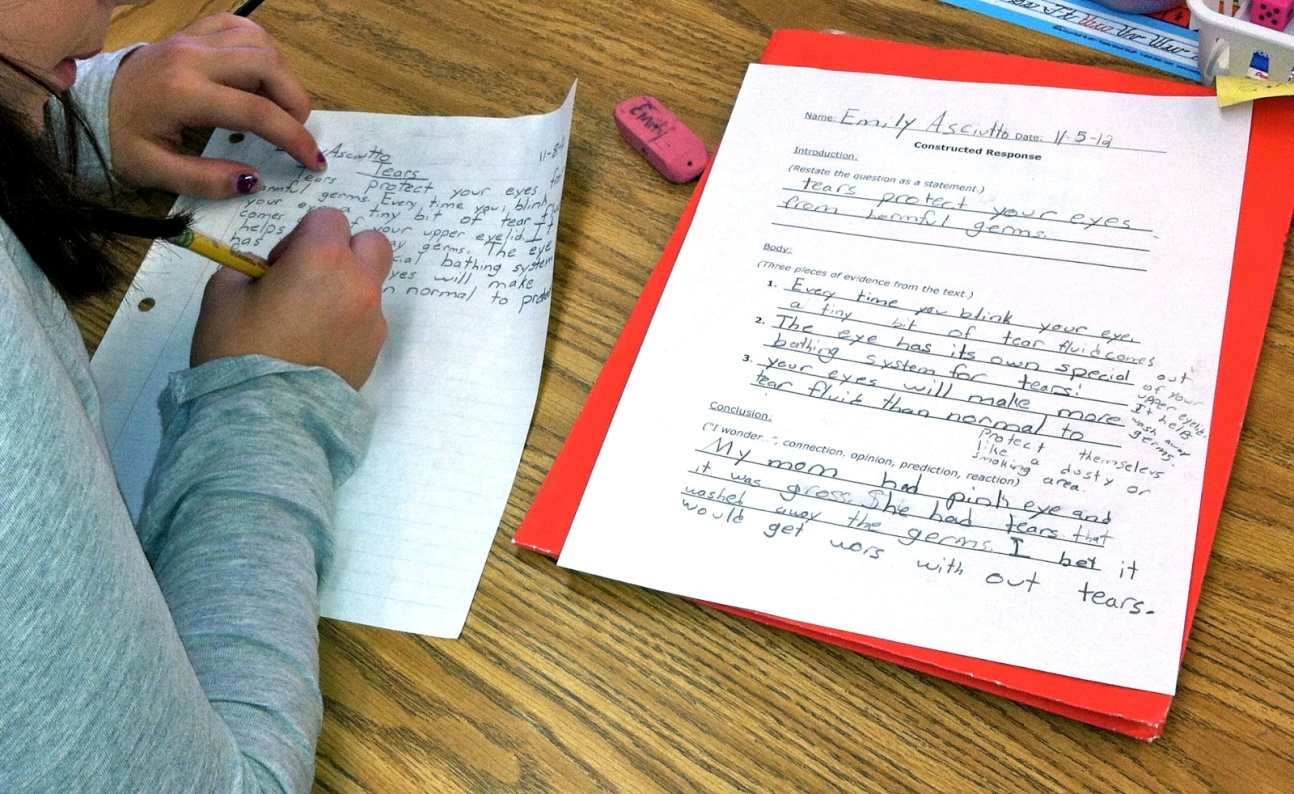 Asciutto 11-8-
Tears
Tears protect your eyes
harmful germs. Every time you blink
your eyes tiny bit of tear
comes of your upper eyelid. It
helps germs. The eye
has cial bathing system
yes will make
n normal to prote
Emily
Name: Emily Asciutto Date: 11-5-12
Constructed Response
Introduction:
(Restate the question as a statement.)
tears protect your eyes
from harmful germs.
Body:
(Three pieces of evidence from the text.)
1. Every time you blink your eye,
a tiny bit of tear fluid comes
out
of your
upper eyelid.
It helps
wash away
germs.
2. The eye has its own special
bathing system for tears!
3. your eyes will make more
tear fluid than normal to
Protect themselevs
like a dusty or
smoking area.
Conclusion:
("I wonder...", connection, opinion, prediction, reaction)
My mom had pink eye and
it was gross. She had tears that
washed away the germs. I bet it
would get wors with out tears.